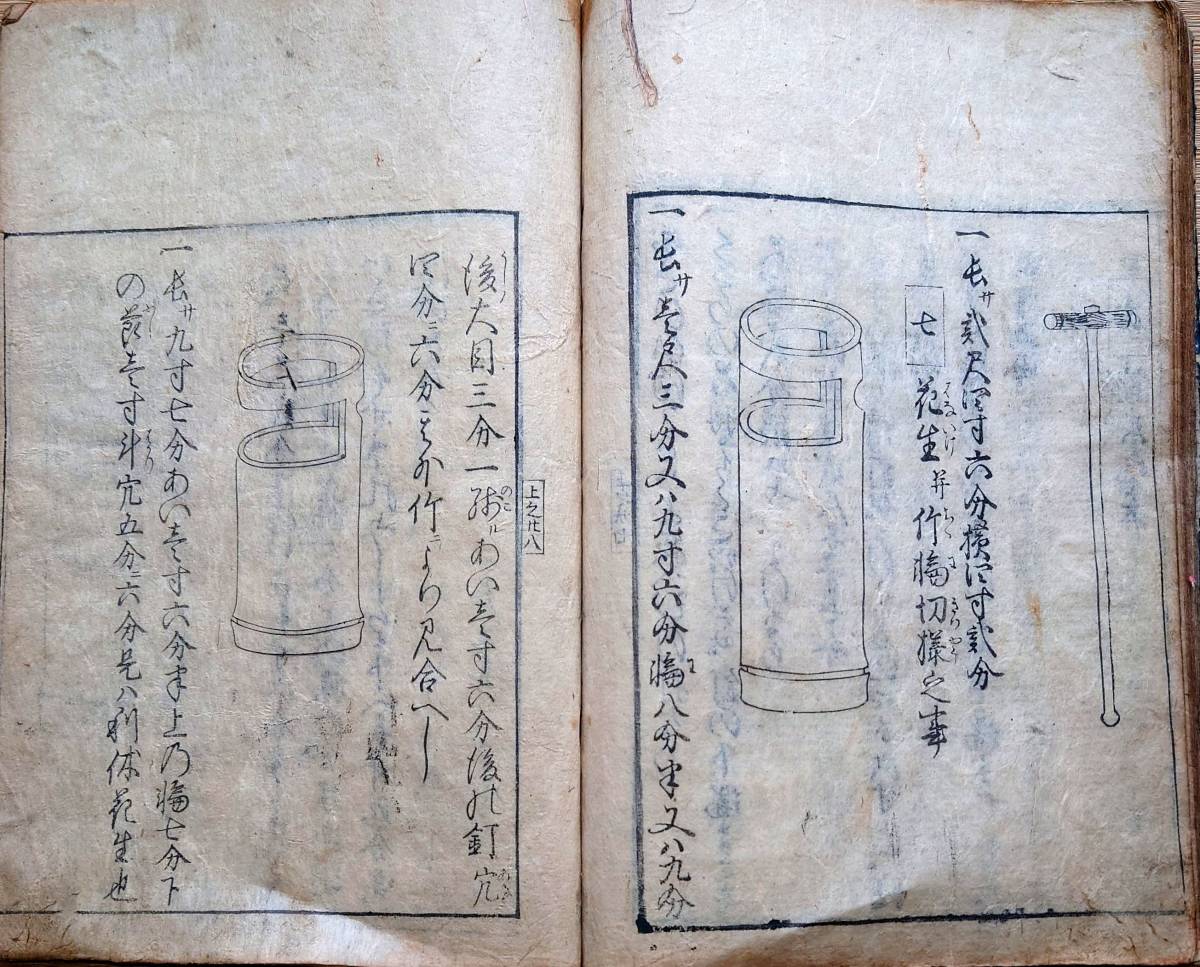 一 長サ貳尺四寸六分横四寸貳分
七 花生并竹輪切様之事
一 長サ壱尺三分又ハ九寸六分輪八分半又ハ九分
後大目三分一残ルあい壱寸六分後の釘穴
四分ニ六分其外竹ニより見合へし
一 長サ九寸七分あい壱寸六分半上乃輪七分下
の節壱寸斗穴五分ニ六分是ハ利休花生也
上之廿八